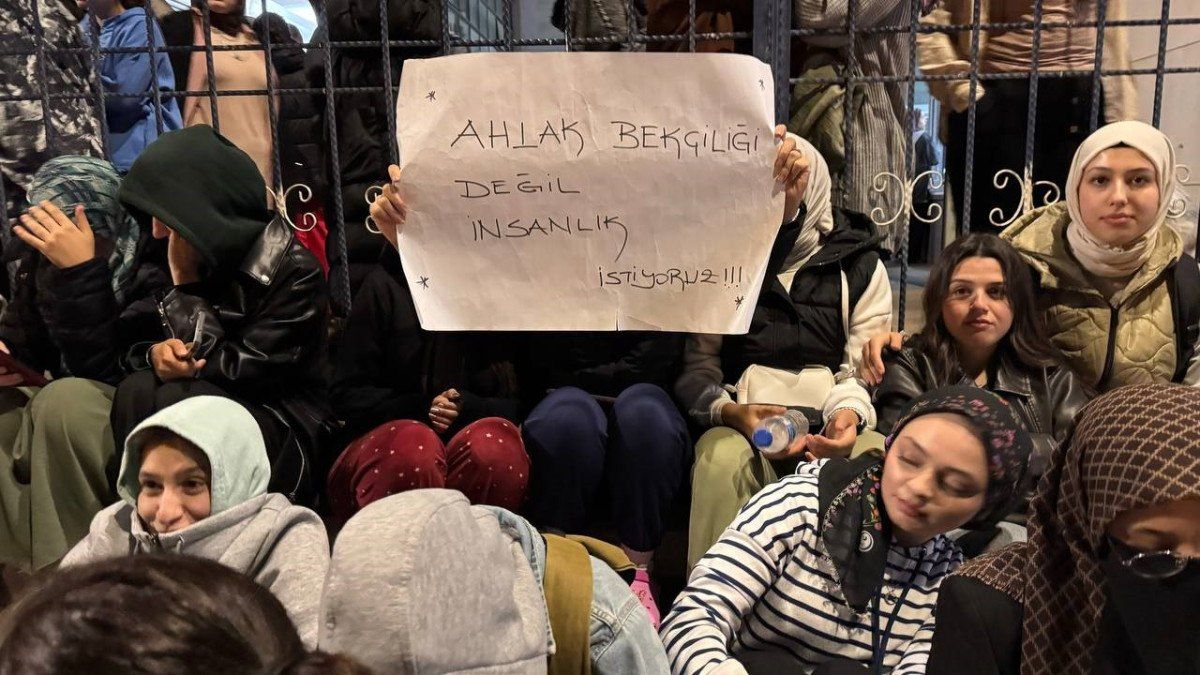 AHLAK BEKÇİLİĞİ
DEĞİL
İNSANLIK
İSTİYORUZ!!!